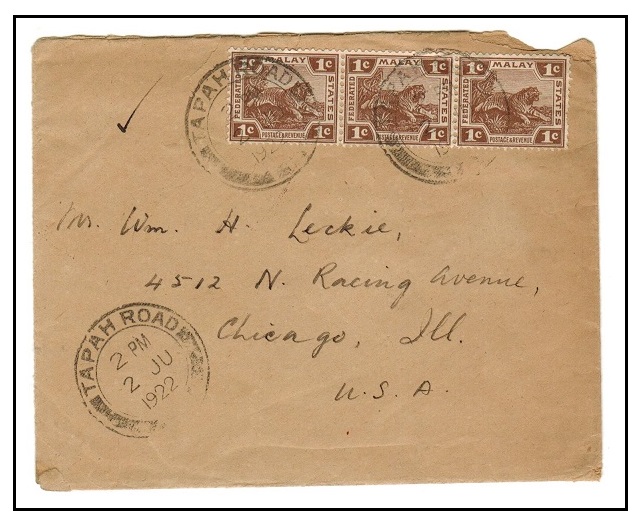 1c MALAY 1c
FEDERATED
STATES
1c POSTAGE & REVENUE 1c
1c MALAY 1c
FEDERATED
STATES
1c POSTAGE & REVENUE 1c
1c MALAY 1c
FEDERATED
STATES
1c POSTAGE & REVENUE 1c
TAPAH ROAD
2
192
Mr. Wm. H. Leckie,
4512 N. Racing Avenue,
Chicago, Ill.
U.S.A.
TAPAH ROAD
2 PM
2 JU
1922